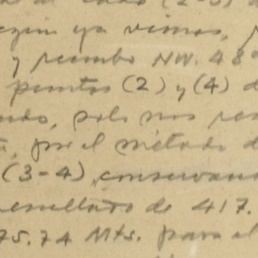 (2-3)
ya vimos,
y rumbo NW. 48°
puntos (2) y (4) d
solo nos res
por el método d
(3-4), conservan
resultado de 417.
75.74 Mts. para el